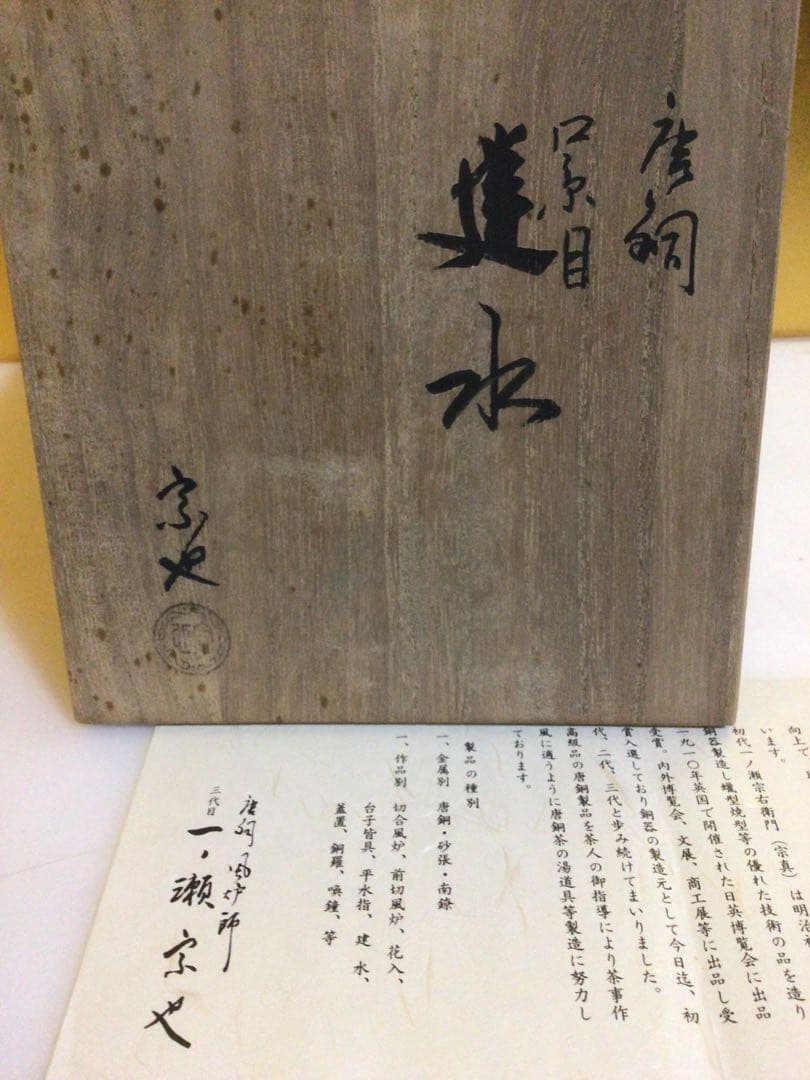 唐銅
口糸目
建水
宗也
向上で、
います。
初代一ノ瀬宗右衛門（宗真）は明治
銅器製造し蠟型焼型等の優れた技術の品を造り
一九一〇年英国で開催された日英博覧会に出品
受賞。内外博覧会、文展、商工展等に出品し受
賞入選しており銅器の製造元として今日迄、初
代、二代、三代と歩み続けてまいりました。
高級品の唐銅製品を茶人の御指導により茶事作
風に適うように唐銅茶の湯道具等製造に努力し
ております。
製品の種別
一、金属別 唐銅・砂張・南鐐
一、作品別 切合風炉、前切風炉、花入、
台子皆具、平水指、建水、
蓋置、銅羅、喚鐘、等
唐銅風炉師
三代目 一ノ瀬宗也